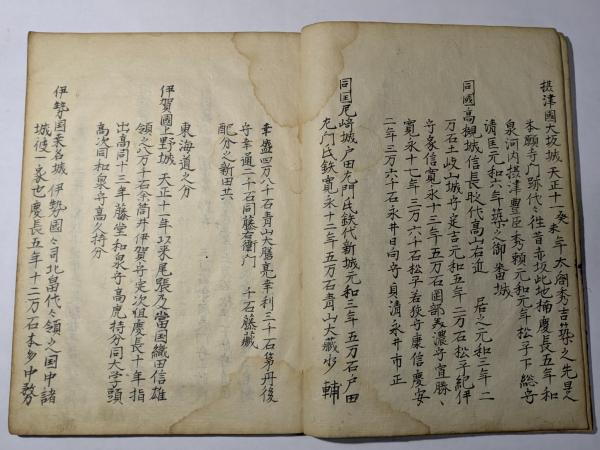 摂津國大坂城 天正十一癸未年太閤秀吉築之先是
本願寺門跡代々住昔赤坂此地摘慶長五年和
泉河内摂津豊臣秀頼元和元年松平下総守
清匡元和六年築之御番城
同國高槻城信長耿代高山右近 居之元和二年二
万石土岐山城守定吉元和五年二万石松平紀伊
守家信寛永十三年五万石岡部美濃守宣勝、
寛永十七年三万六千石松平若狭守康信慶安
二年三万六千石永井日向守貞清永井市正
同国尼崎城戸田左門氏鉄代新城元和三年五万石戸田
左門氏鉄寛永十二年五万石青山大蔵少輔
幸盛四万八千石青山大膳亮幸利三千石第丹後
守幸通二千石同藤右衛門 千石藤蔵
配分之新田共
東海道之分
伊賀國上野城 天正十一年以来尾張乃當国織田信雄
領之八万千石余筒井伊賀守定次但慶長十年指
出高同十三年藤堂和泉守高虎持分同大学頭
高次同和泉守高久持分
伊勢国桑名城 伊勢國々司北畠代々領之国中諸
城彼一家也慶長五年十二万石本多中務